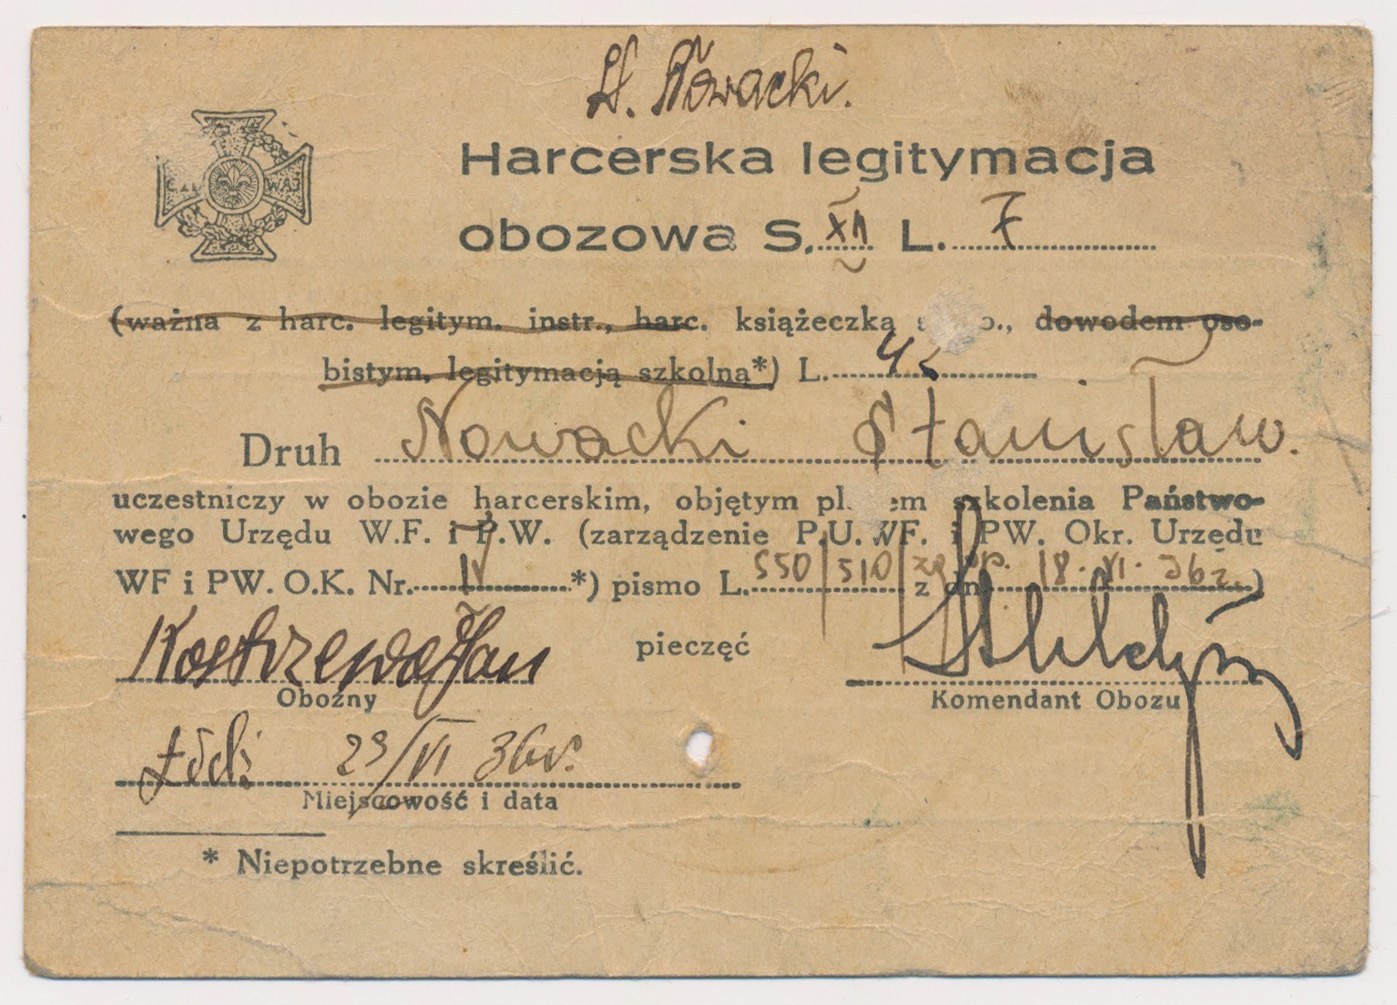 St. Nowacki.
Harcerska legitymacja
obozowa S. XII L. 7
(ważna z harc. legitym. instr., harc. książeczką o., dowodem oso-
bistym, legitymacją szkolną*) L. 42
Druh Nowacki Stanisław.
uczestniczy w obozie harcerskim, objętym szkolenia Państwo-
wego Urzędu W.F. i P.W. (zarządzenie P.U.WF. i PW. Okr. Urzędu
WF i PW. O.K. Nr. IV *) pismo L. 550/510/ z dn. 18.VI.36r.)
Kostrzewa Jan
pieczęć
Oboźny
Komendant Obozu
Łódź 29/VI 36r.
Miejscowość i data
* Niepotrzebne skreślić.